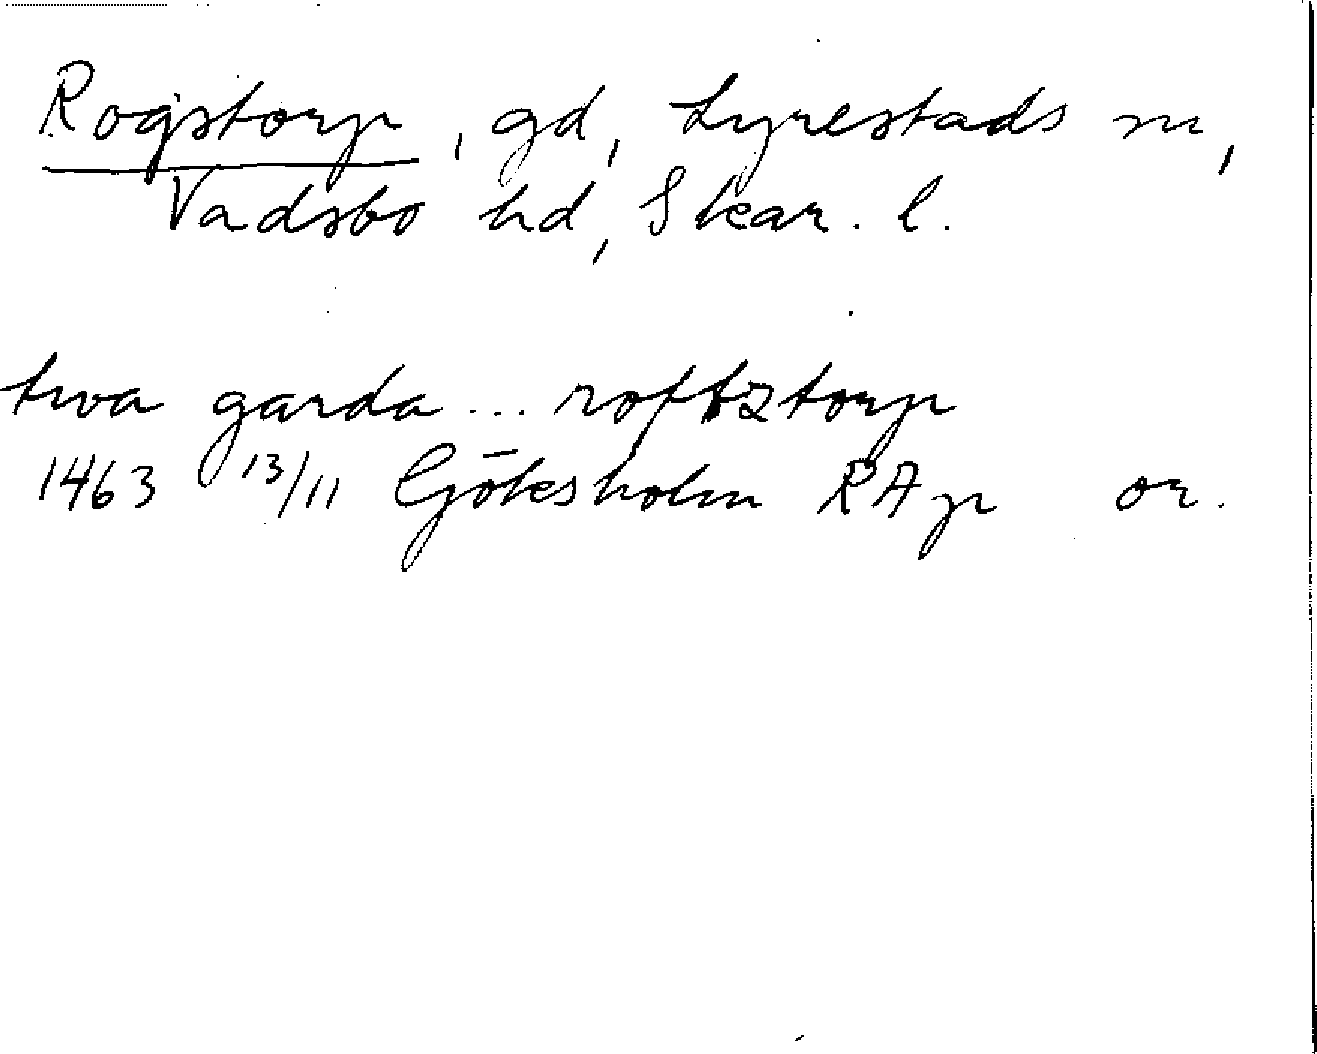 Rogstorp, gd, Lyrestads sn,
Vadsbo hd, Skar. l.
twa garda ... roftztorp
1463 13/11 Gökesholm RAp or.